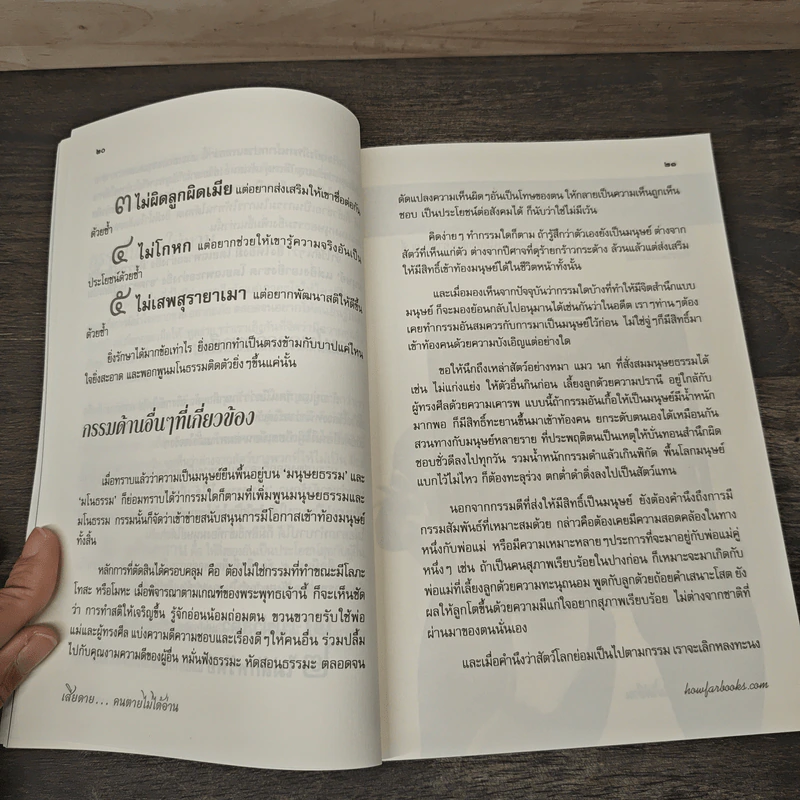 ๒๐
๓ ไม่ผิดลูกผิดเมีย แต่อยากส่งเสริมให้เขาซื่อต่อกัน
ด้วยซ้ำ
๔ ไม่โกหก แต่อยากช่วยให้เขารู้ความจริงอันเป็น
ประโยชน์ด้วยซ้ำ
๕ ไม่เสพสุรายาเมา แต่อยากพัฒนาสติให้ดีขึ้น
ด้วยซ้ำ
ยิ่งรักษาได้มากข้อเท่าไร ยิ่งอยากทำเป็นตรงข้ามกับบาปแค่ไหน
ใจยิ่งสะอาด และพอกพูนมโนธรรมติดตัวยิ่งๆขึ้นแค่นั้น
กรรมด้านอื่นๆที่เกี่ยวข้อง
เมื่อทราบแล้วว่าความเป็นมนุษย์ยืนพื้นอยู่บน ‘มนุษยธรรม’ และ
‘มโนธรรม’ ก็ย่อมทราบได้ว่ากรรมใดก็ตามที่เพิ่มพูนมนุษยธรรมและ
มโนธรรม กรรมนั้นก็จัดว่าเข้าข่ายสนับสนุนการมีโอกาสเข้าท้องมนุษย์
ทั้งสิ้น
หลักการที่ตัดสินได้ครอบคลุม คือ ต้องไม่ใช่กรรมที่ทำขณะมีโลภะ
โทสะ หรือโมหะ เมื่อพิจารณาตามเกณฑ์ของพระพุทธเจ้านี้ ก็จะเห็นชัด
ว่า การทำสติให้เจริญขึ้น รู้จักอ่อนน้อมถ่อมตน ขวนขวายรับใช้พ่อ
แม่และผู้ทรงศีล แบ่งความดีความชอบและเรื่องดีๆให้คนอื่น ร่วมปลื้ม
ไปกับคุณงามความดีของผู้อื่น หมั่นฟังธรรมะ หัดสอนธรรมะ ตลอดจน
เสียดาย... คนตายไม่ได้อ่าน
๒๑
ดัดแปลงความเห็นผิดๆอันเป็นโทษของตน ให้กลายเป็นความเห็นถูกเห็น
ชอบ เป็นประโยชน์ต่อสังคมได้ ก็นับว่าใช่ไม่มีเว้น
คิดง่ายๆ ทำกรรมใดก็ตาม ถ้ารู้สึกว่าตัวเองยังเป็นมนุษย์ ต่างจาก
สัตว์ที่เห็นแก่ตัว ต่างจากปีศาจที่ดุร้ายกร้าวกระด้าง ล้วนแล้วแต่ส่งเสริม
ให้มีสิทธิ์เข้าท้องมนุษย์ได้ในชีวิตหน้าทั้งนั้น
และเมื่อมองเห็นจากปัจจุบันว่ากรรมใดบ้างที่ทำให้มีจิตสำนึกแบบ
มนุษย์ ก็จะมองย้อนกลับไปอนุมานได้เช่นกันว่าในอดีต เราๆท่านๆต้อง
เคยทำกรรมอันสมควรกับการมาเป็นมนุษย์ไว้ก่อน ไม่ใช่จู่ๆก็มีสิทธิ์มา
เข้าท้องคนด้วยความบังเอิญแต่อย่างใด
ขอให้นึกถึงเหล่าสัตว์อย่างหมา แมว นก ที่สั่งสมมนุษยธรรมได้
เช่น ไม่แก่งแย่ง ให้ตัวอื่นกินก่อน เลี้ยงลูกด้วยความปรานี อยู่ใกล้กับ
ผู้ทรงศีลด้วยความเคารพ แบบนี้ถ้ากรรมอันเกื้อให้เป็นมนุษย์มีน้ำหนัก
มากพอ ก็มีสิทธิ์ทะยานขึ้นมาเข้าท้องคน ยกระดับตนเองได้เหมือนกัน
สวนทางกับมนุษย์หลายราย ที่ประพฤติตนเป็นเหตุให้บั่นทอนสำนึกผิด
ชอบชั่วดีลงไปทุกวัน รวมน้ำหนักกรรมดำแล้วเกินพิกัด พื้นโลกมนุษย์
แบกไว้ไม่ไหว ก็ต้องทะลุร่วง ตกต่ำดำดิ่งลงไปเป็นสัตว์แทน
นอกจากกรรมดีที่ส่งให้มีสิทธิ์เป็นมนุษย์ ยังต้องคำนึงถึงการมี
กรรมสัมพันธ์ที่เหมาะสมด้วย กล่าวคือต้องเคยมีความสอดคล้องในทาง
หนึ่งกับพ่อแม่ หรือมีความเหมาะหลายๆประการที่จะมาอยู่กับพ่อแม่คู่
หนึ่งๆ เช่น ถ้าเป็นคนสุภาพเรียบร้อยในปางก่อน ก็เหมาะจะมาเกิดกับ
พ่อแม่ที่เลี้ยงลูกด้วยความทะนุถนอม พูดกับลูกด้วยถ้อยคำเสนาะโสต ยัง
ผลให้ลูกโตขึ้นด้วยความมีแก่ใจอยากสุภาพเรียบร้อย ไม่ต่างจากชาติที่
ผ่านมาของตนนั่นเอง
และเมื่อคำนึงว่าสัตว์โลกย่อมเป็นไปตามกรรม เราจะเลิกหลงทะนง
howfarbooks.com